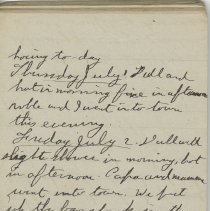 hoeing to-day
Thursday July 1 Dull and
hot in morning fine in afternoon
noble and I went into town
this evening.
Friday July 2. Dull with
slight showers in morning, hot
in afternoon. Papa and mamma
went into town. We put
up the